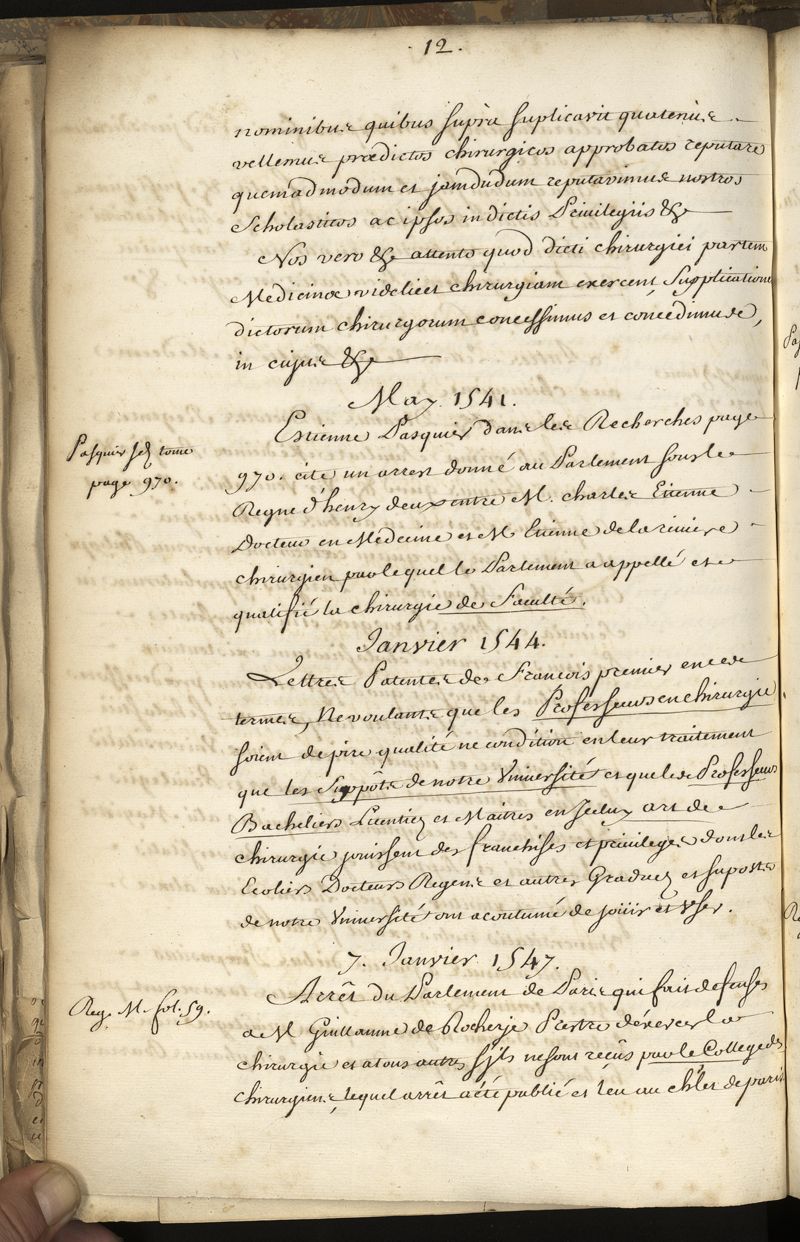 . 12 .
nominibus quibus suprà suplicavit quatenùs
vellemus prædictos chirurgicos approbatos reputare
quemadmodum et jamdudum reputavimus nostros
Scholasticos ac ipsos in dictis Privilegiis &c
Nos vero &c attento quod dicti chirurgici partem
Medicinæ videlicet chirurgiam exercent, Supplicationem
dictorum chirurgorum concessimus et concedimus,
in cujus &c
May 1541.
Pasquier sed tome
page 970.
Estienne Pasquier dans les Recherches page
970. cite un arrest donné au Parlement sous le
Regne d'henry deux entre M. charles Etienne
Docteur en Medecine et M Etienne de la riviere
chirurgien par lequel le Parlement a appellé et
qualifié la chirurgie de Faculté.
Janvier 1544.
Lettres Patentes de François premier en ces
termes, Ne voulants que les Professeurs en chirurgie
soient de pire qualité ne condition en leur traitement
que les Suppôts de notre Université et que les Professeurs
Bacheliers Licentiez et Maitres en Icelluy art de
chirurgie jouissent des franchises et privileges dont les
Ecoliers Docteurs Regens et autres Graduez et supots
de notre Université ont acoutumé de joüir et User.
7. Janvier 1547.
Reg. M. fol. 59.
Arrêt du Parlement de Paris qui fait defenses
a M Guillaume de Rocherje Prestre d'éxercer la
chirurgie et a tous autres s'ils ne sont reçûs par le College des
chirurgiens, lequel arrêt a été publié et leu au ch.let de paris